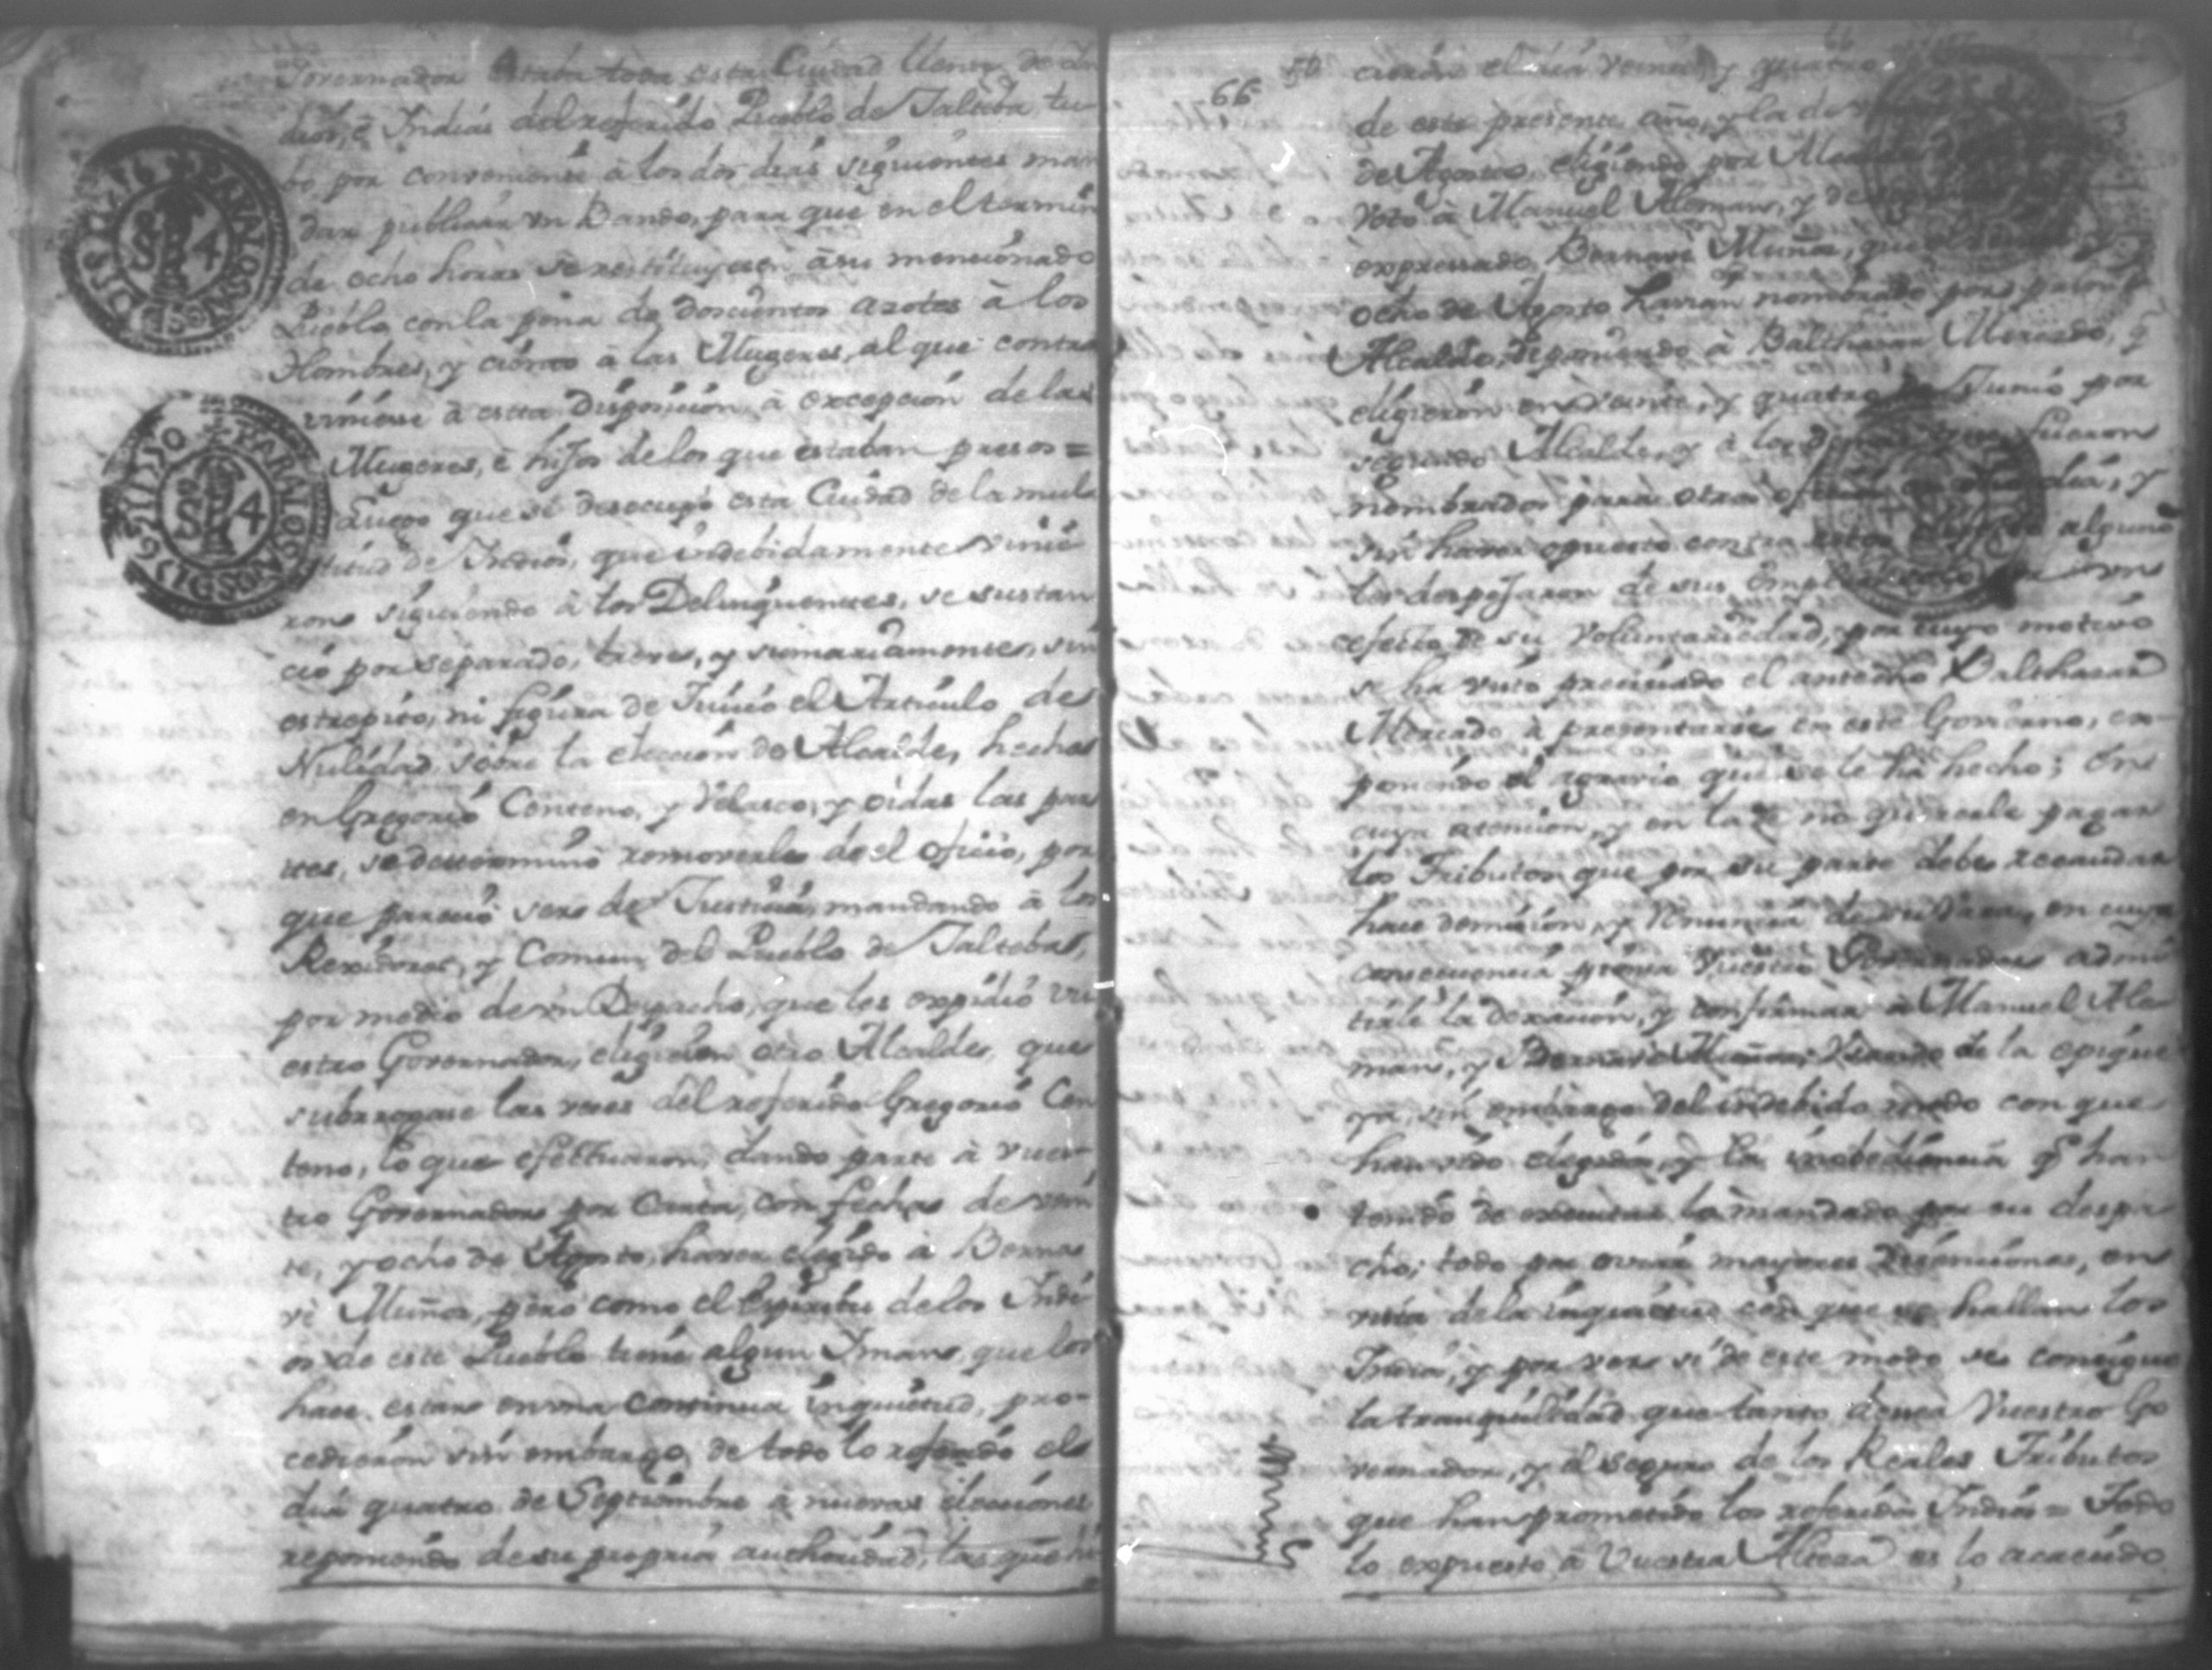 Governador estaba toda esta Ciudad llena de In
dios, è Indias del referido Pueblo de Jalteba tu
bo por conveniente à los dos dias siguientes man
dar publicar un Bando, para que en el termino
de ocho horas se restituyesen à su mencionado
Pueblo con la pena de doscientos azotes à los
Hombres, y ciento à las Mugeres, al que contra
viniese à esta Disposicion, à excepcion de las
Mugeres, è hijos de los que estaban presos =
Luego que se desocupò esta Ciudad de la mul
titud de Indios, que indebidamente vinie
ron siguiendo à los Delinquentes, se sustan
ciò por separado, breve, y sumariamente, sin
estrepito, ni figura de Juicio el Articulo de
Nulidad sobre la eleccion de Alcalde, hecha
en Gregorio Centeno, y Velasco, y oidas las par
tes, se determinò removerle de el oficio, por
que pareciò ser de Justicia, mandando à los
Rexidores, y Comun del Pueblo de Jalteba,
por medio de un Despacho, que les expidiò vu
estro Governador, eligiesen otro Alcalde, que
subrrogase las veces del referido Gregorio Cen
teno, lo que efectuaron, dando parte à vues
tro Governador por Carta, con fecha de vein
te, y ocho de Agosto, haver elegido à Berna
vè Muñoz, pero como el Espiritu de los Indi
os de este Pueblo tiene algun Iman, que los
hace estar en una continua inquietud, pro-
cedieron sin embargo de todo lo referido el
dia quatro de Septiembre à nuevas elecciones
reponiendo de su propria authoridad, las que hi
66
cieron el dia veinte, y quatro
de este presente año, y la de
de Agosto, eligiendo por Alcalde
Voto à Manuel Aleman, y de
expressado Bernavè Muñoz, que
ocho de Agosto havian nombrado por primer
Alcalde, deponiendo à Balthasar Mercado, q̃
eligieron en veinte, y quatro de Junio por
segundo Alcalde, y à los demas que fueron
nombrados para otros oficios en dia, y
sin haver opuesto contra estos alguno
los despojaron de sus Empleos
efecto de su Voluntariedad, por cuyo motivo
se ha visto precisado el antedho Balthasar
Mercado à presentarse en este Govierno, ex-
poniendo el agravio que se le ha hecho; en
cuya atencion, y en la de no quererle pagar
los Tributos que por su parte debe recaudar
hace demision, y renuncia de su Vara, en cuya
consecuencia piensa Vuestro Governador admi
tirle la dexacion, y confirmar à Manuel Ale
man, y Bernavè Muñoz, Usando de la epique
ya, sin embargo del indebido modo con que
han sido elegidos, y la inobediencia q̃ han
tenido de executar lo mandado por su despa
cho; todo por evitar mayores disenciones, en
vista de la inquietud con que se hallan los
Indios, y por ver si de este modo se consigue
la tranquilidad que tanto desea Vuestro Go
vernador, y el seguro de los Reales Tributos
que han prometido los referidos Indios = Todo
lo expuesto à Vuestra Alteza es lo acaecido